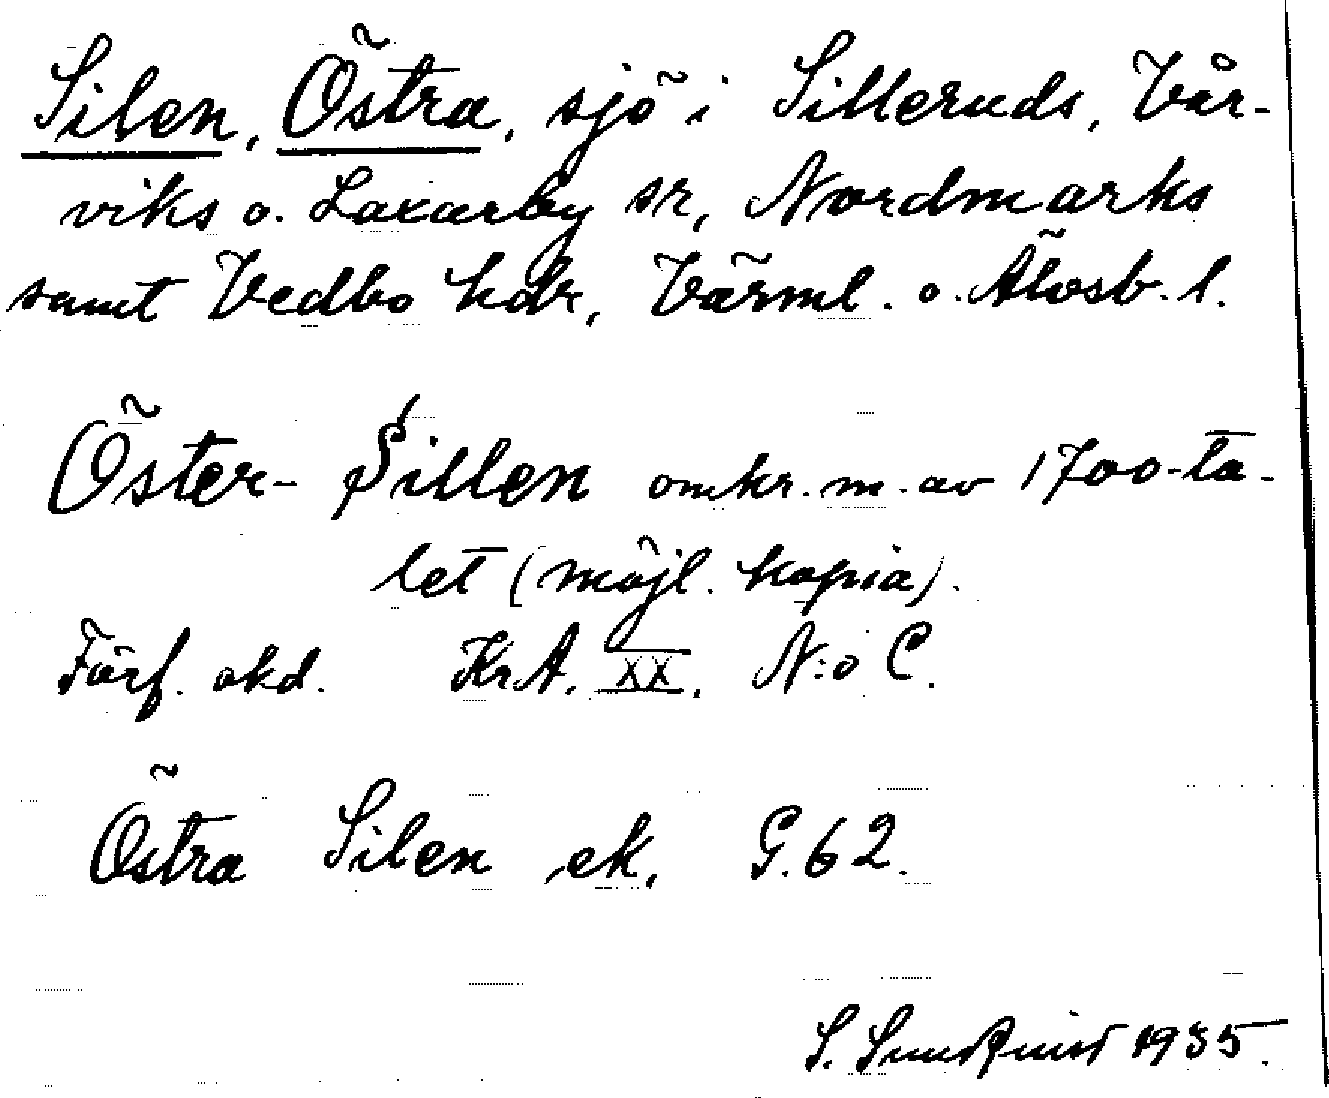 Silen, Östra, sjö i Silleruds, Vår-
viks o. Laxarby sr, Nordmarks
samt Vedbo hdr, Värml. o. Älvsb. l.
Öster- Sillen omkr. m. av 1700-ta-
let (möjl. kopia).
Förf. okd. KrA. XX. N:o C.
Östra Silen ek. G. 62.
S. Sundquist 1935.